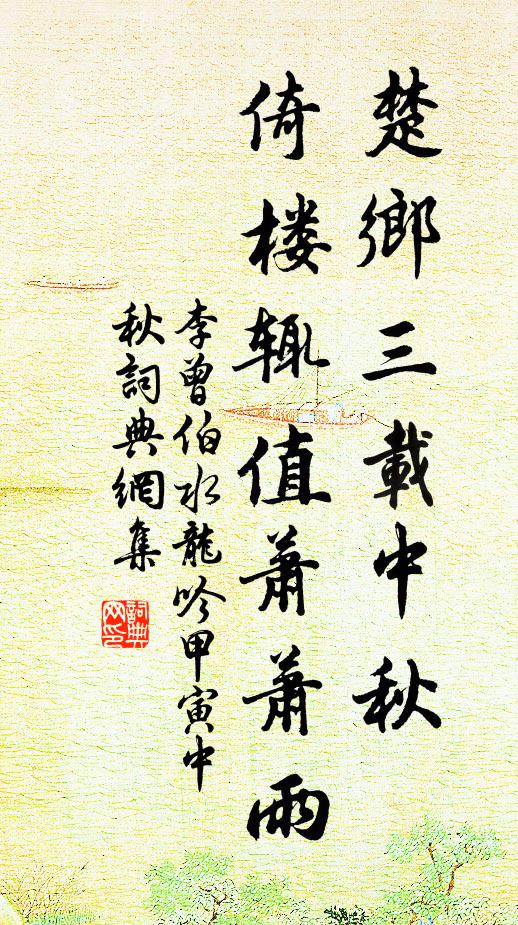 楚鄉三載中秋
倚楼輒值蕭蕭雨
李曾伯水龍吟甲寅中
秋詞典網集
詞典网印